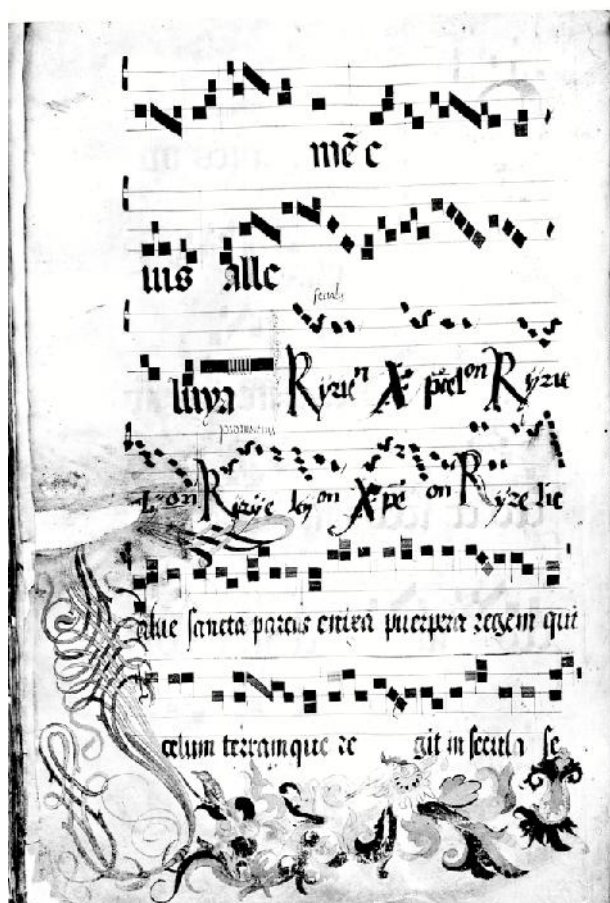 mē c
nis alle
luya Kyrie n Xp̄e l on Kyrie
L on Kyrye ley on Xpē on Kyrie lie
alue sancta parens enixa puerpera regem qui
celum terramque re git in secula se